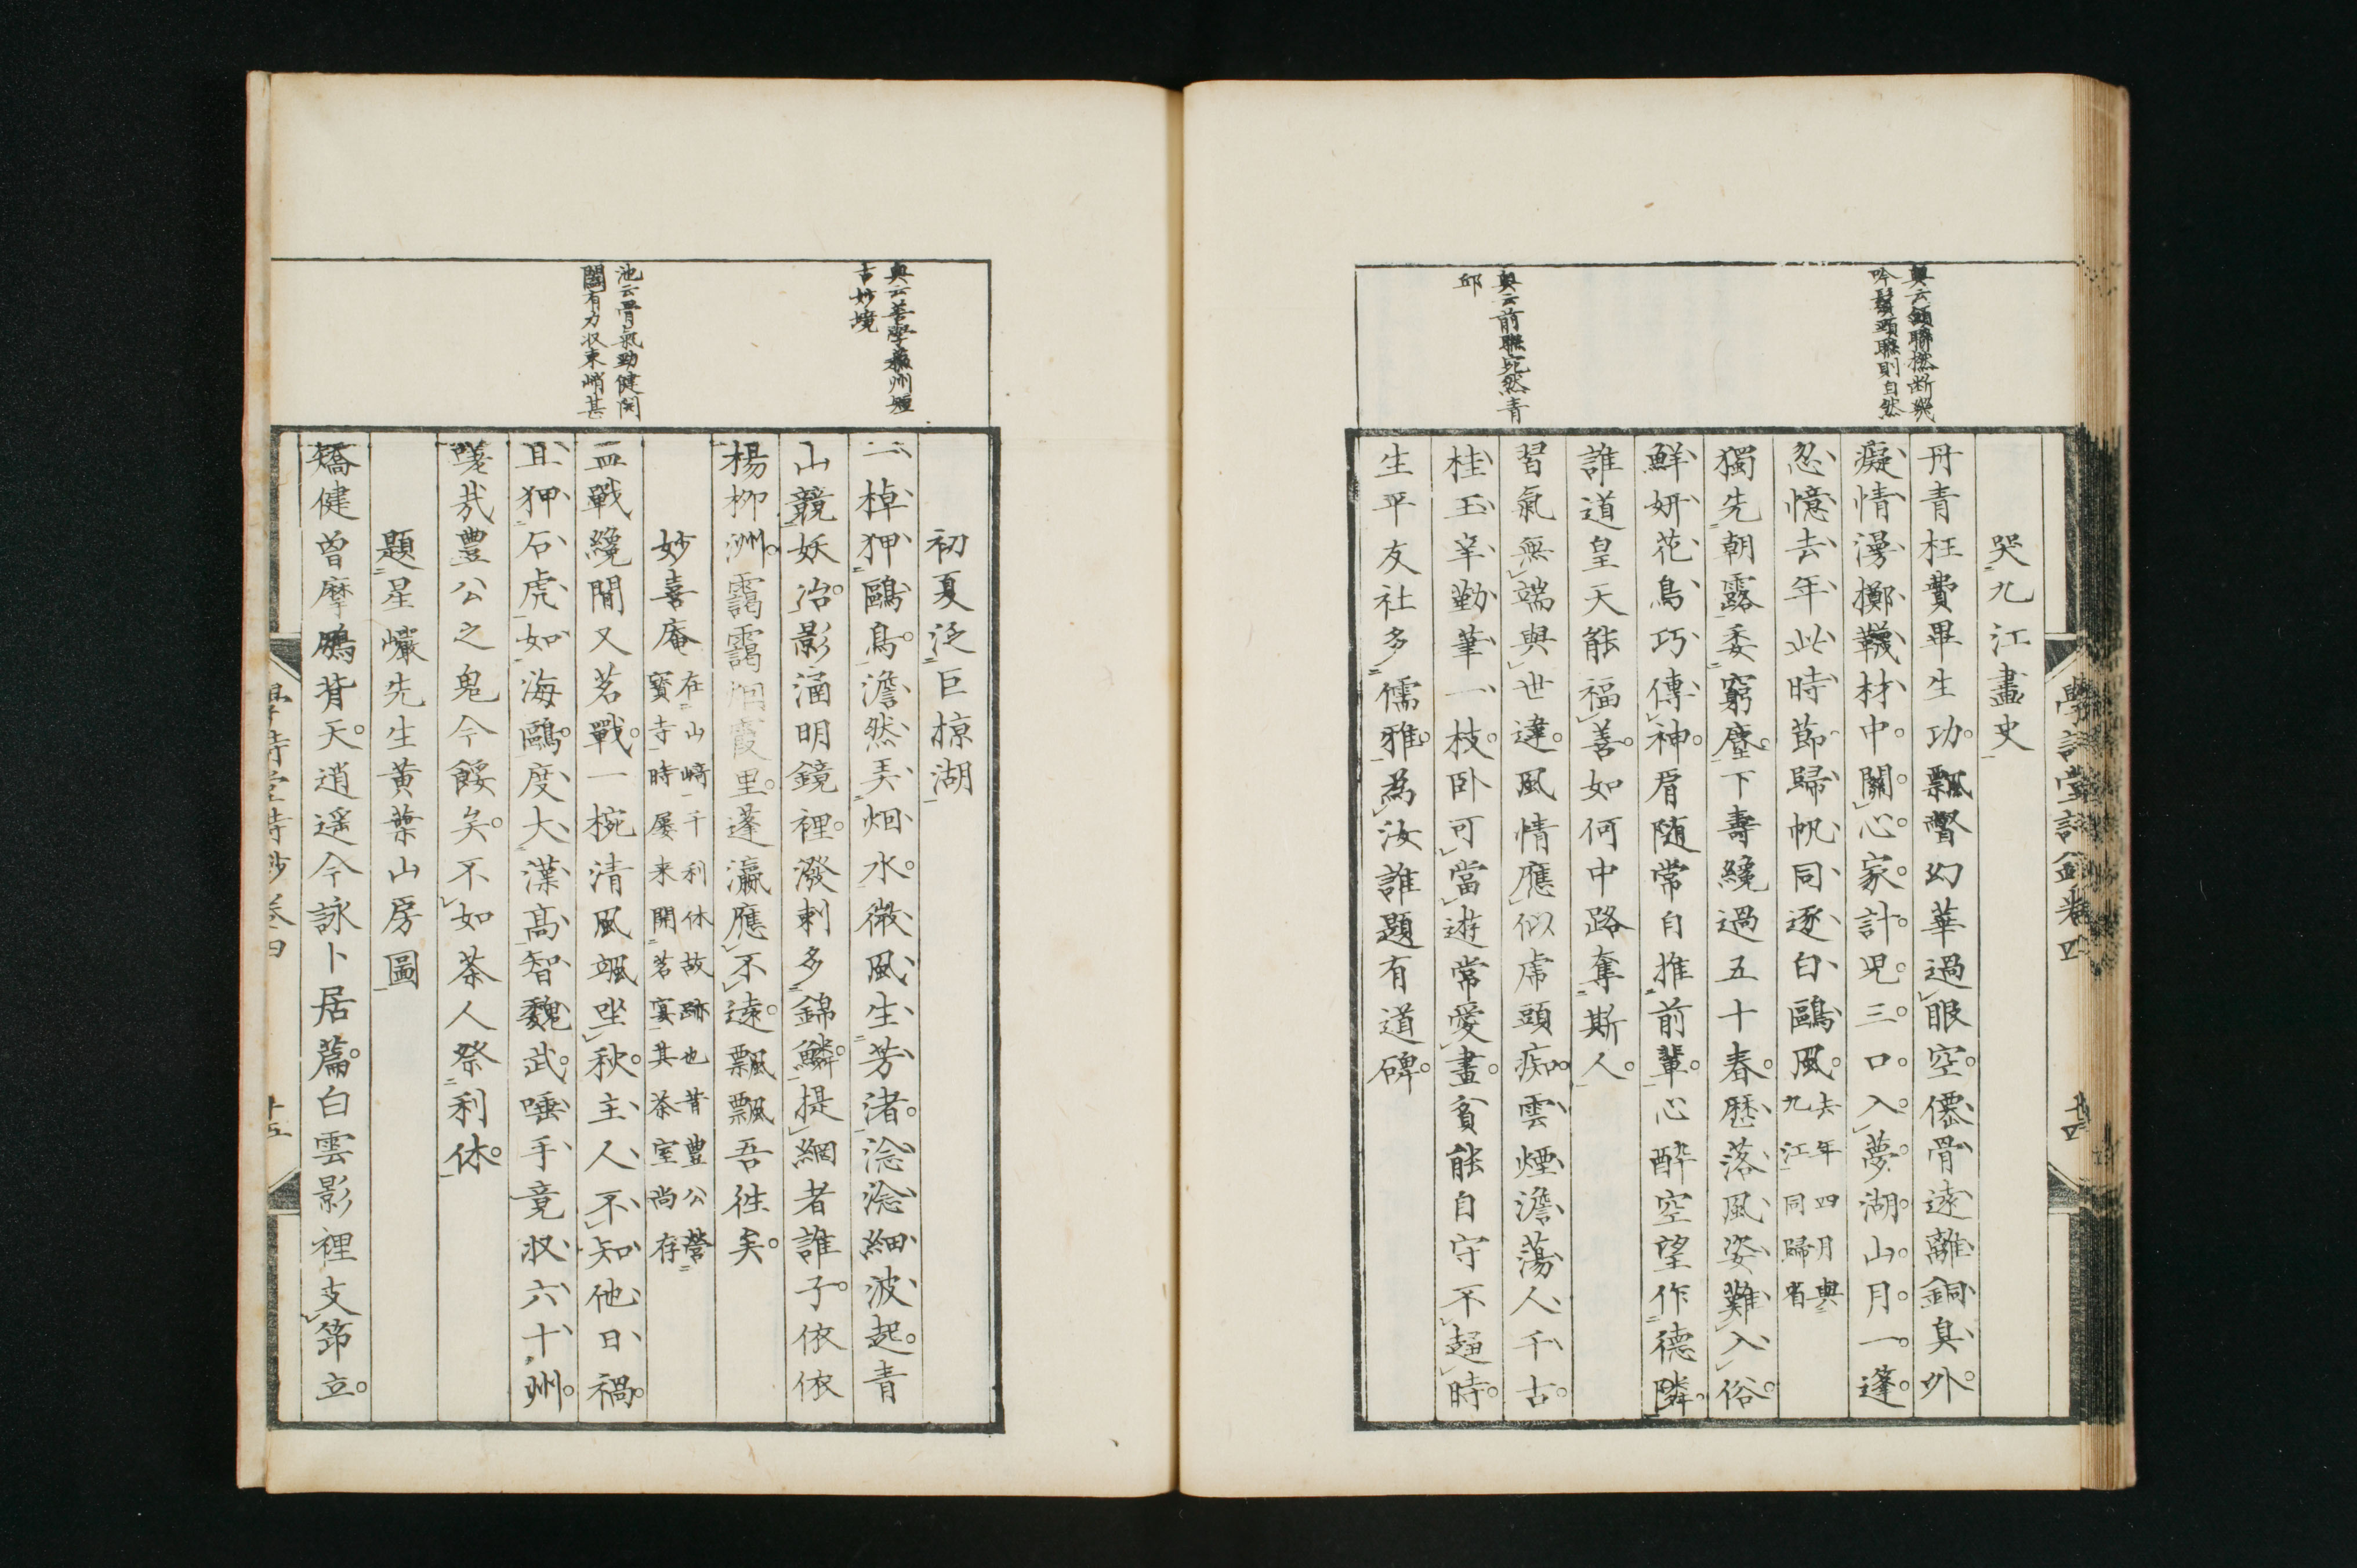 哭九江畫史
丹青枉費畢生功飄瞥幻華過眼空僊骨遠離銅臭外
癡情漫擲韈材中關心家計兒三口入夢湖山月一篷
忽憶去年此時節歸帆同逐白鷗風
去年四月與
九江同歸省
獨先朝露委窮塵下壽纔過五十春歷落風姿難入俗
鮮妍花鳥巧傳神眉随常自推前輩心醉空望作德隣
誰道皇天能福善如何中路奪斯人
習氣無端與世違風情應似虎頭痴雲煙澹蕩人千古
桂玉辛勤筆一枝卧可當遊常愛畫貧能自守不趨時
生平友社多儒雅為汝誰題有道碑
奧云前聯宛然青
邱
初夏泛巨椋湖
一棹狎鷗鳥澹然弄烟水微風生芳渚淰淰細波起青
山競妖冶影涵明鏡裡潑剌多錦鱗提網者誰子依依
楊柳洲靄靄烟霞里蓬瀛應不遠飄飄吾往矣
奧云善學蘇州短
古妙境
妙喜庵
在山崎千利休故跡也昔豊公營
寳寺時屡来開茗宴其茶室尚存
血戰纔閒又茗戰一椀清風颯坐秋主人不知他日禍
且狎石虎如海鷗度大漢高智魏武唾手竟収六十州
嗟㢤豊公之鬼今餒矣不如茶人祭利休
池云骨氣勁健開
闔有力収束峭甚
題星巖先生黄葉山房圖
矯健曽摩鵰背天逍遥今詠卜居篇白雲影裡支筇立